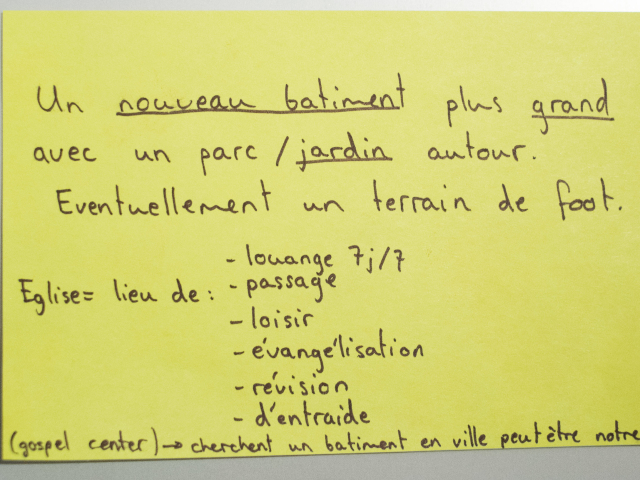 Un nouveau batiment plus grand
avec un parc / jardin autour.
Eventuellement un terrain de foot.
Eglise= lieu de :
- louange 7j/7
- passage
- loisir
- évangélisation
- révision
- d'entraide
(gospel center) → cherchent un batiment en ville peut être notre